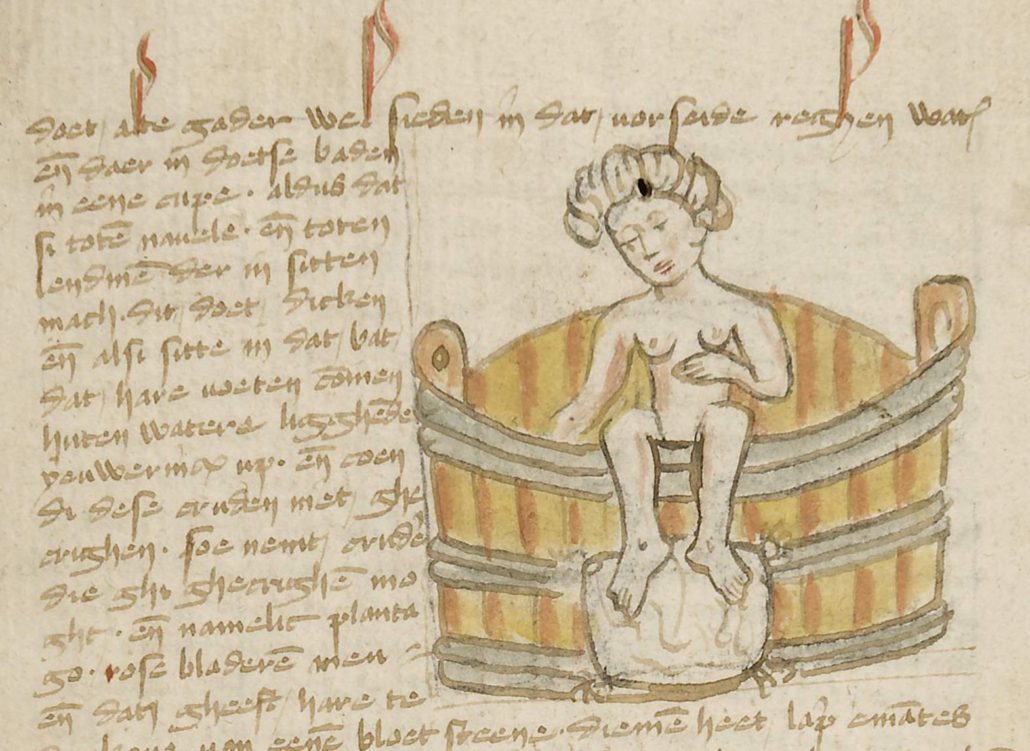 doet, alte gader wel sieden in dat, vorseide reghen wat͛
en̄ daer in doetse baden
in eene cupe · aldus dat
si totē navele · en̄ toten
lendinē der in sitten
mach · dit, doet, dicken
en̄ alsi sitte in dat, vat
dat, hare voeten comen
huten watere ligghēde
en̄ coen
di dese cruden niet, ghe
crighen · soe nemt, crudē
die ghi ghecrighē mo
ght · en̄ namelic planta
go · rose bladerē men
en̄ dan gheeft, hare te
van eenē bloet steene · diemē heet lap̄ emātes